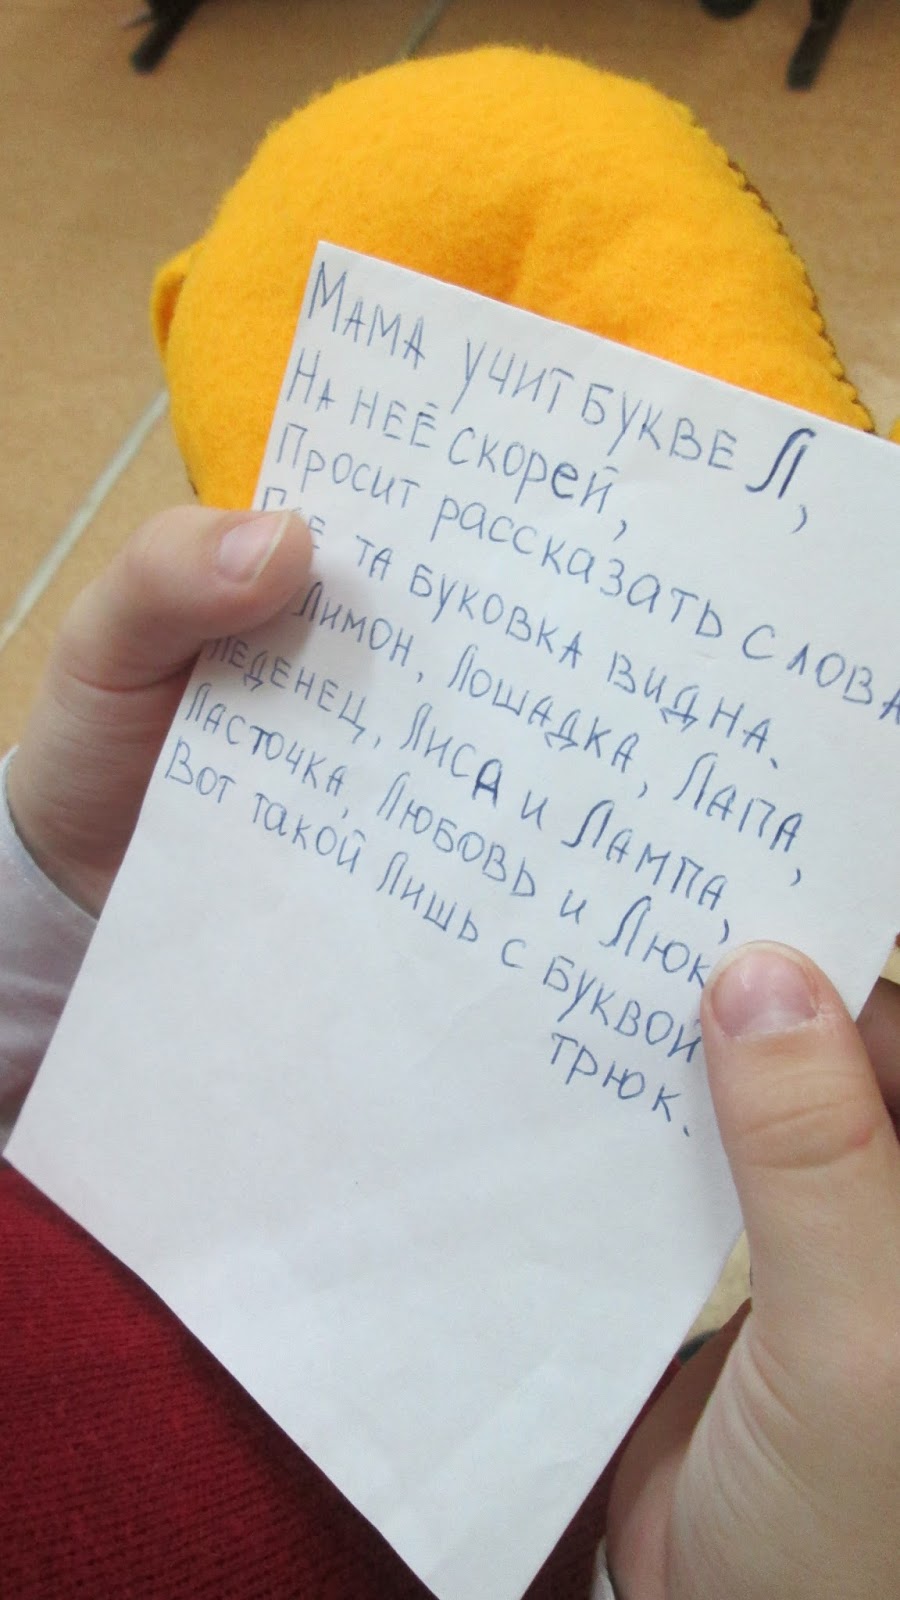 Мама учит букве Л,
На неё скорей,
Просит рассказать слова
та буковка видна.
Лимон, Лошадка, Лапа,
Леденец, Лиса и Лампа,
Ласточка, Любовь и Люк
Вот такой лишь с буквой
трюк.